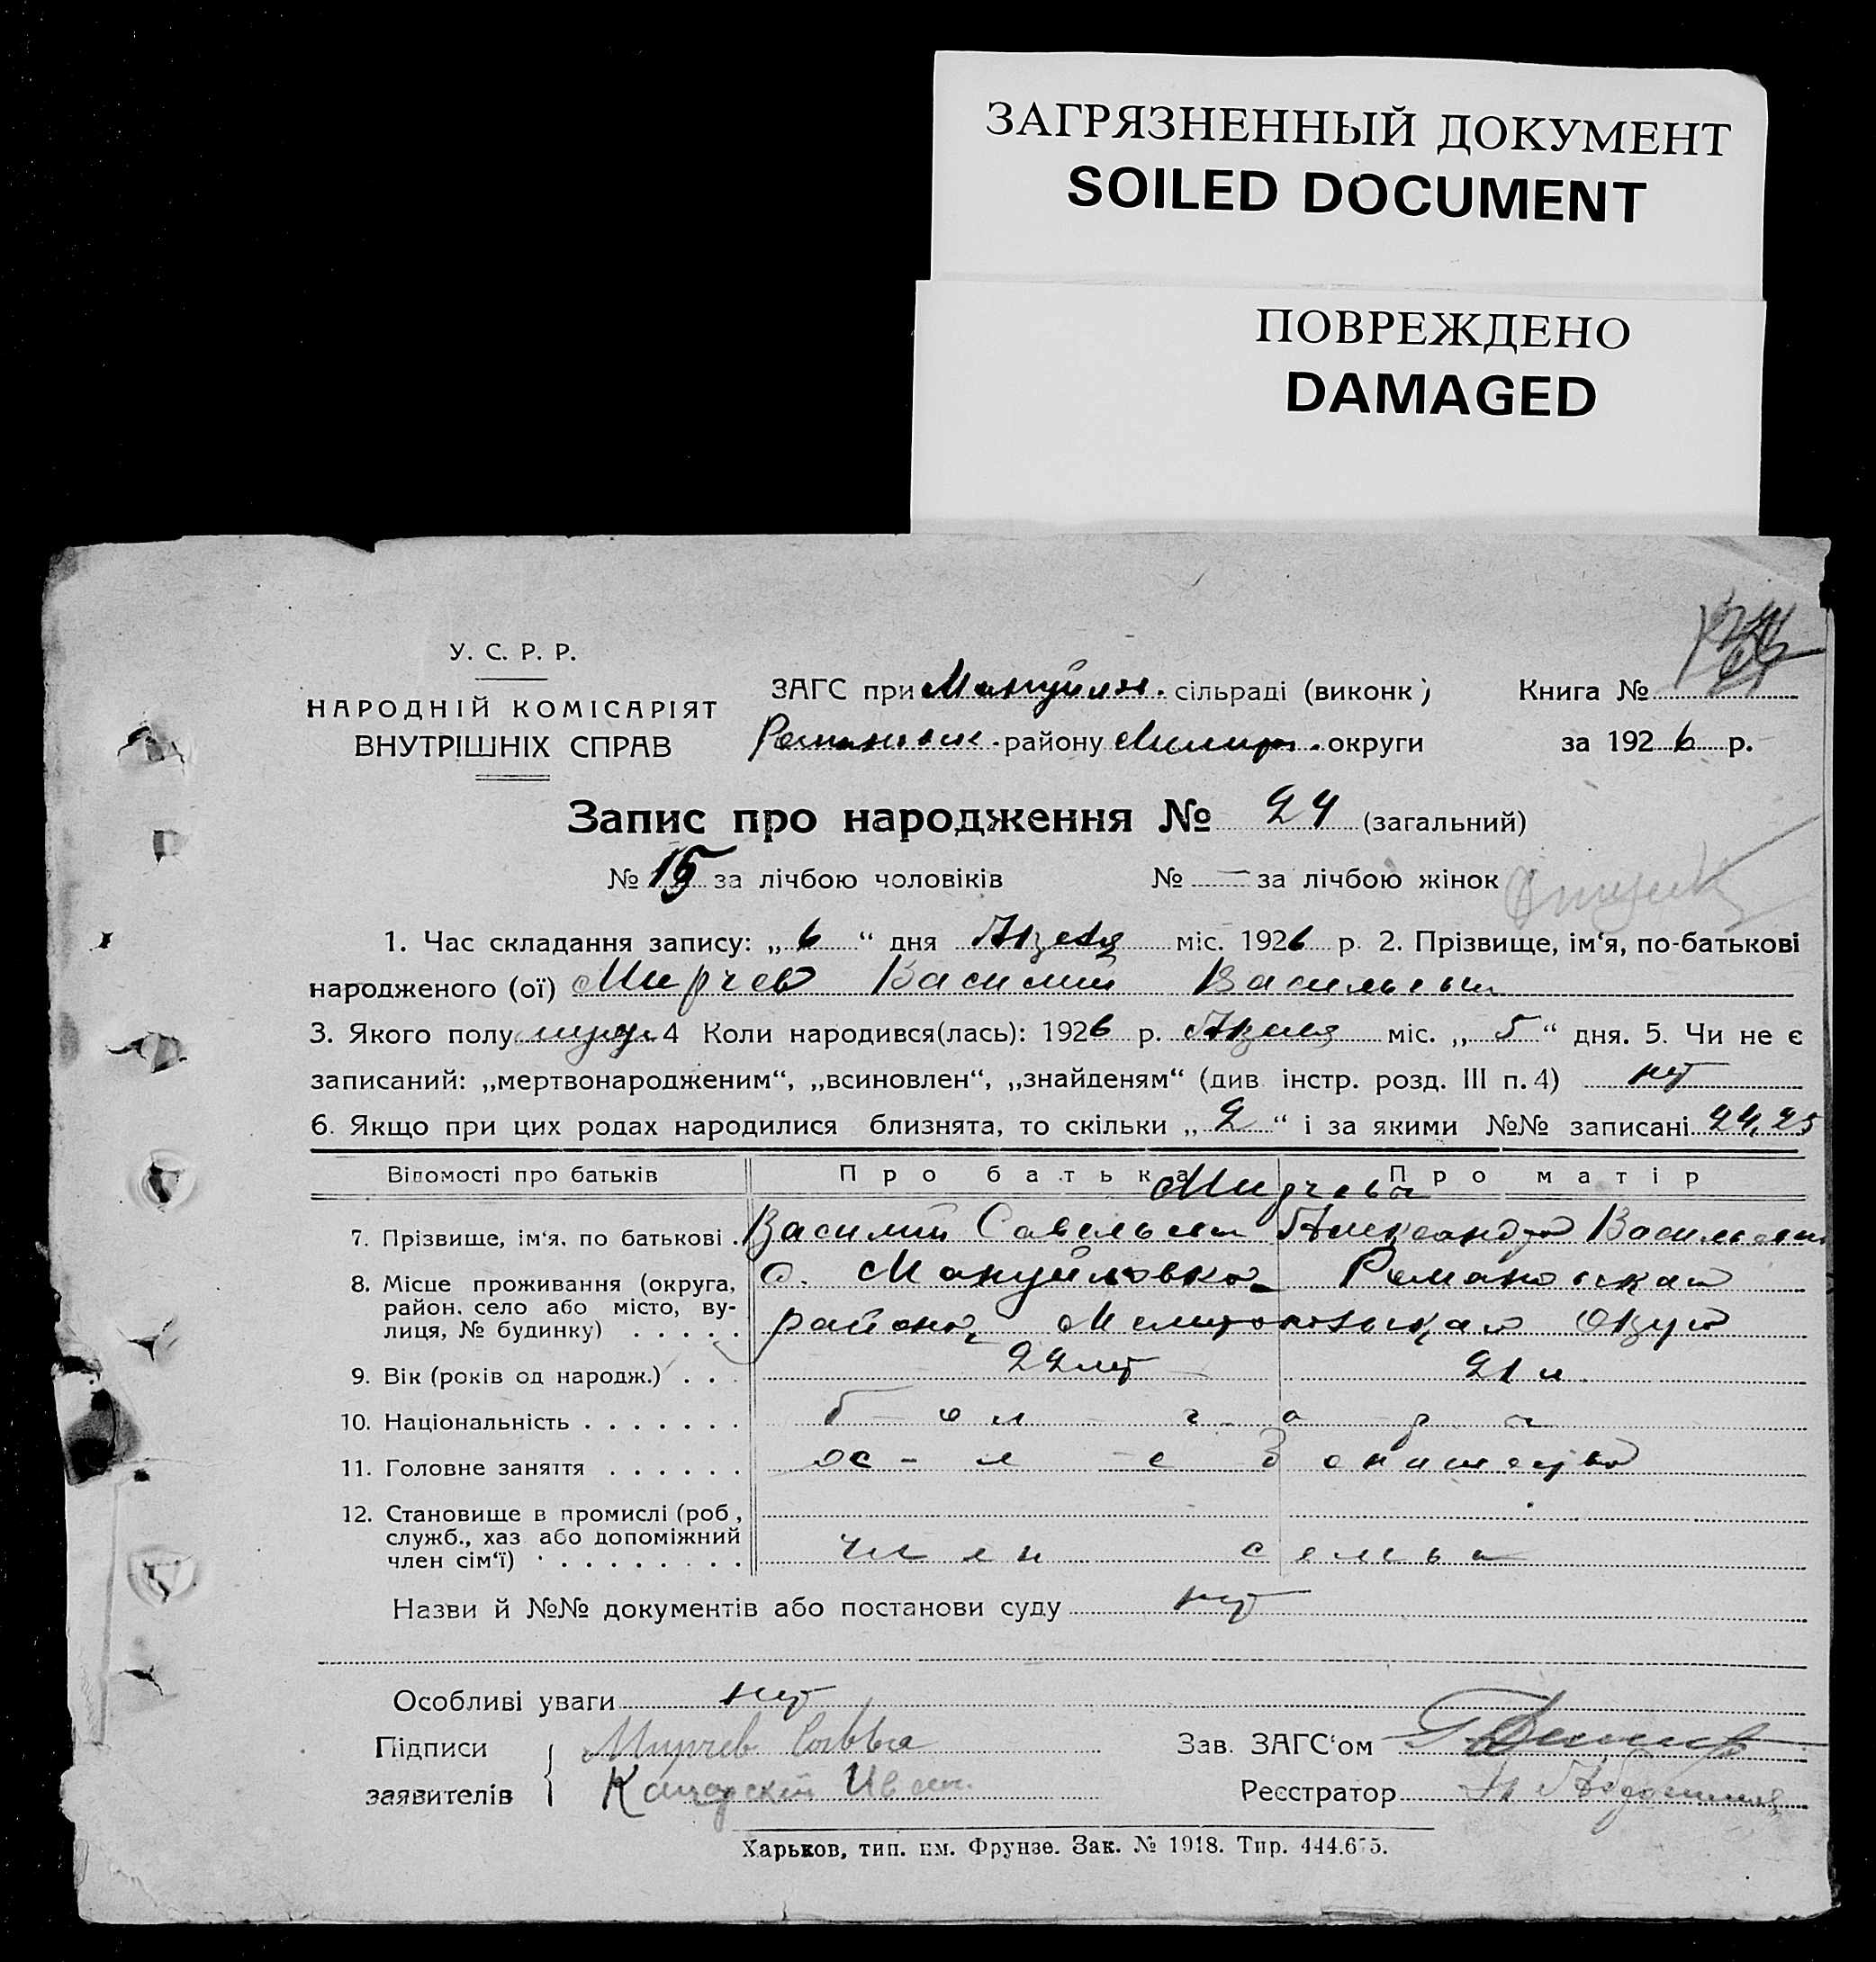 ЗАГРЯЗНЕННЫЙ ДОКУМЕНТ
SOILED DOCUMENT
ПОВРЕЖДЕНО
DAMAGED
У. С. Р. Р.
НАРОДНІЙ КОМІСАРІЯТ
ВНУТРІШНІХ СПРАВ
ЗАГС при Мануйлов. сільраді (виконк)
Романовск. району Мелитоп. округи
Книга №
за 1926 р.
Запис про народження № 24 (загальний)
№ 15 за лічбою чоловіків № — за лічбою жінок
1. Час складання запису: „ 6 “ дня Апреля міс. 1926 р. 2. Прізвище, ім‘я, по-батькові
народженого (ої) Мирчев Василий Васильевич
3. Якого полу мужс. 4 Коли народився(лась): 1926 р. Апреля міс. „ 5 “ дня. 5. Чи не є
записаний: „мертвонародженим“, „всиновлен“, „знайденям“ (див. інстр. розд. III п. 4) нет
6. Якщо при цих родах народилися близнята, то скільки „ 2 “ і за якими №№ записані 24, 25
Відомості про батьків Про батька Про матір
Мирчевы
7. Прізвище, ім‘я, по батькові . Василий Савельевич Александра Васильевна
8. Місце проживання (округа, район, село або місто, вулиця, № будинку) . . . . . с. Мануйловка Романовская
района Мелитопольская Округа
9. Вік (років од народж.) . . . 22 лет 21 л.
10. Національність . . . . . . . болгары
11. Головне заняття . . . . . .
12. Становище в промислі (роб., служб., хаз або допоміжний член сім‘ї) . . . . . . . . . член семьи
Назви й №№ документів або постанови суду нет
Особливі уваги нет
Підписи
заявителів
Мирчев Савва
Иван
Зав. ЗАГС‘ом
Реєстратор
Харьков, тип. им. Фрунзе. Зак. № 1918. Тир. 444.675.